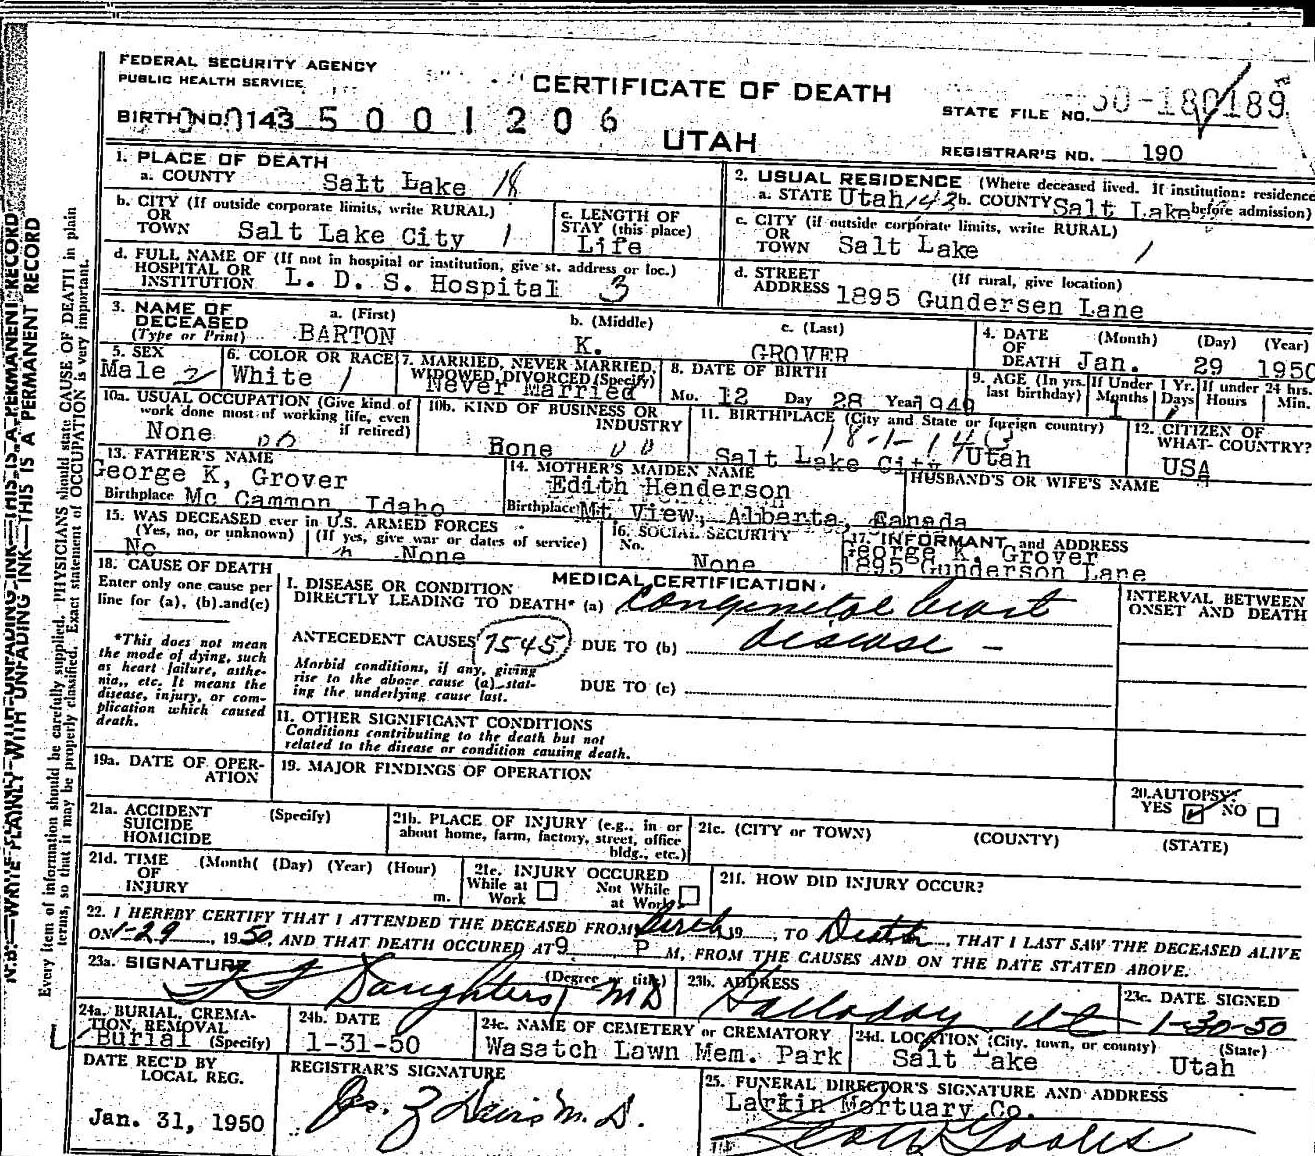 FEDERAL SECURITY AGENCY
PUBLIC HEALTH SERVICE
CERTIFICATE OF DEATH
STATE FILE NO. 50-180189
BIRTH NO. 143 5 0 0 1 2 0 6
UTAH
REGISTRAR'S NO. 190
1. PLACE OF DEATH
a. COUNTY Salt Lake 18
2. USUAL RESIDENCE (Where deceased lived. If institution: residence before admission)
a. STATE Utah 143 b. COUNTY Salt Lake
b. CITY (If outside corporate limits, write RURAL)
OR
TOWN Salt Lake City 1
c. LENGTH OF
STAY (this place)
Life
c. CITY (if outside corporate limits, write RURAL)
OR
TOWN Salt Lake 1
d. FULL NAME OF (If not in hospital or institution, give st. address or loc.)
HOSPITAL OR
INSTITUTION L. D. S. Hospital 3
d. STREET (If rural, give location)
ADDRESS 1895 Gundersen Lane
3. NAME OF
DECEASED
(Type or Print)
a. (First)
BARTON
b. (Middle)
K.
c. (Last)
GROVER
4. DATE (Month) (Day) (Year)
OF
DEATH Jan. 29 1950
5. SEX
Male 2
6. COLOR OR RACE
White 1
7. MARRIED, NEVER MARRIED,
WIDOWED, DIVORCED (Specify)
Never Married
8. DATE OF BIRTH
Mo. 12 Day 28 Year 1949
9. AGE (In yrs. last birthday)
If Under 1 Yr.
Months Days
1 1
If under 24 hrs.
Hours Min.
10a. USUAL OCCUPATION (Give kind of
work done most of working life, even
if retired)
None 00
10b. KIND OF BUSINESS OR
INDUSTRY
Bone 00
11. BIRTHPLACE (City and State or foreign country)
18-1-143
Salt Lake City, Utah
12. CITIZEN OF
WHAT COUNTRY?
USA
13. FATHER'S NAME
George K, Grover
Birthplace Mc Cammon, Idaho
14. MOTHER'S MAIDEN NAME
Edith Henderson
Birthplace Mt View, Alberta, Canada
HUSBAND'S OR WIFE'S NAME
15. WAS DECEASED ever in U.S. ARMED FORCES
(Yes, no, or unknown) (If yes, give war or dates of service)
No None
16. SOCIAL SECURITY
No.
None
17. INFORMANT and ADDRESS
George K. Grover
1895 Gunderson Lane
18. CAUSE OF DEATH
Enter only one cause per
line for (a), (b) and(c)
*This does not mean
the mode of dying, such
as heart failure, asthe-
nia,, etc. It means the
disease, injury, or com-
plication which caused
death.
MEDICAL CERTIFICATION
I. DISEASE OR CONDITION
DIRECTLY LEADING TO DEATH* (a) Congenital heart
ANTECEDENT CAUSES 7545 DUE TO (b) disease -
Morbid conditions, if any, giving
rise to the above cause (a) stat-
ing the underlying cause last.
DUE TO (c)
INTERVAL BETWEEN
ONSET AND DEATH
II. OTHER SIGNIFICANT CONDITIONS
Conditions contributing to the death but not
related to the disease or condition causing death.
19a. DATE OF OPER-
ATION
19. MAJOR FINDINGS OF OPERATION
20. AUTOPSY?
YES NO
21a. ACCIDENT (Specify)
SUICIDE
HOMICIDE
21b. PLACE OF INJURY (e.g., in or
about home, farm, factory, street, office
bldg., etc.)
21c. (CITY or TOWN) (COUNTY) (STATE)
21d. TIME (Month( (Day) (Year) (Hour)
OF
INJURY m.
21e. INJURY OCCURED
While at Work Not While at Work
21f. HOW DID INJURY OCCUR?
22. I HEREBY CERTIFY THAT I ATTENDED THE DECEASED FROM Birth 19 , TO Death , THAT I LAST SAW THE DECEASED ALIVE
ON 1-29 , 1950, AND THAT DEATH OCCURED AT 9 P M, FROM THE CAUSES AND ON THE DATE STATED ABOVE.
23a. SIGNATURE (Degree or title)
Daughters, MD
23b. ADDRESS
Holladay Ut
23c. DATE SIGNED
1-30-50
24a. BURIAL, CREMA-
TION, REMOVAL
Burial (Specify)
24b. DATE
1-31-50
24c. NAME OF CEMETERY or CREMATORY
Wasatch Lawn Mem. Park
24d. LOCATION (City, town, or county) (State)
Salt Lake Utah
DATE REC'D BY
LOCAL REG.
Jan. 31, 1950
REGISTRAR'S SIGNATURE
Jas. Z Davis M. D.
25. FUNERAL DIRECTOR'S SIGNATURE AND ADDRESS
Larkin Mortuary Co.
N.B.—WRITE PLAINLY WITH UNFADING INK—THIS IS A PERMANENT RECORD
Every item of information should be carefully supplied. PHYSICIANS should state CAUSE OF DEATH in plain
terms, so that it may be properly classified. Exact statement of OCCUPATION is very important.